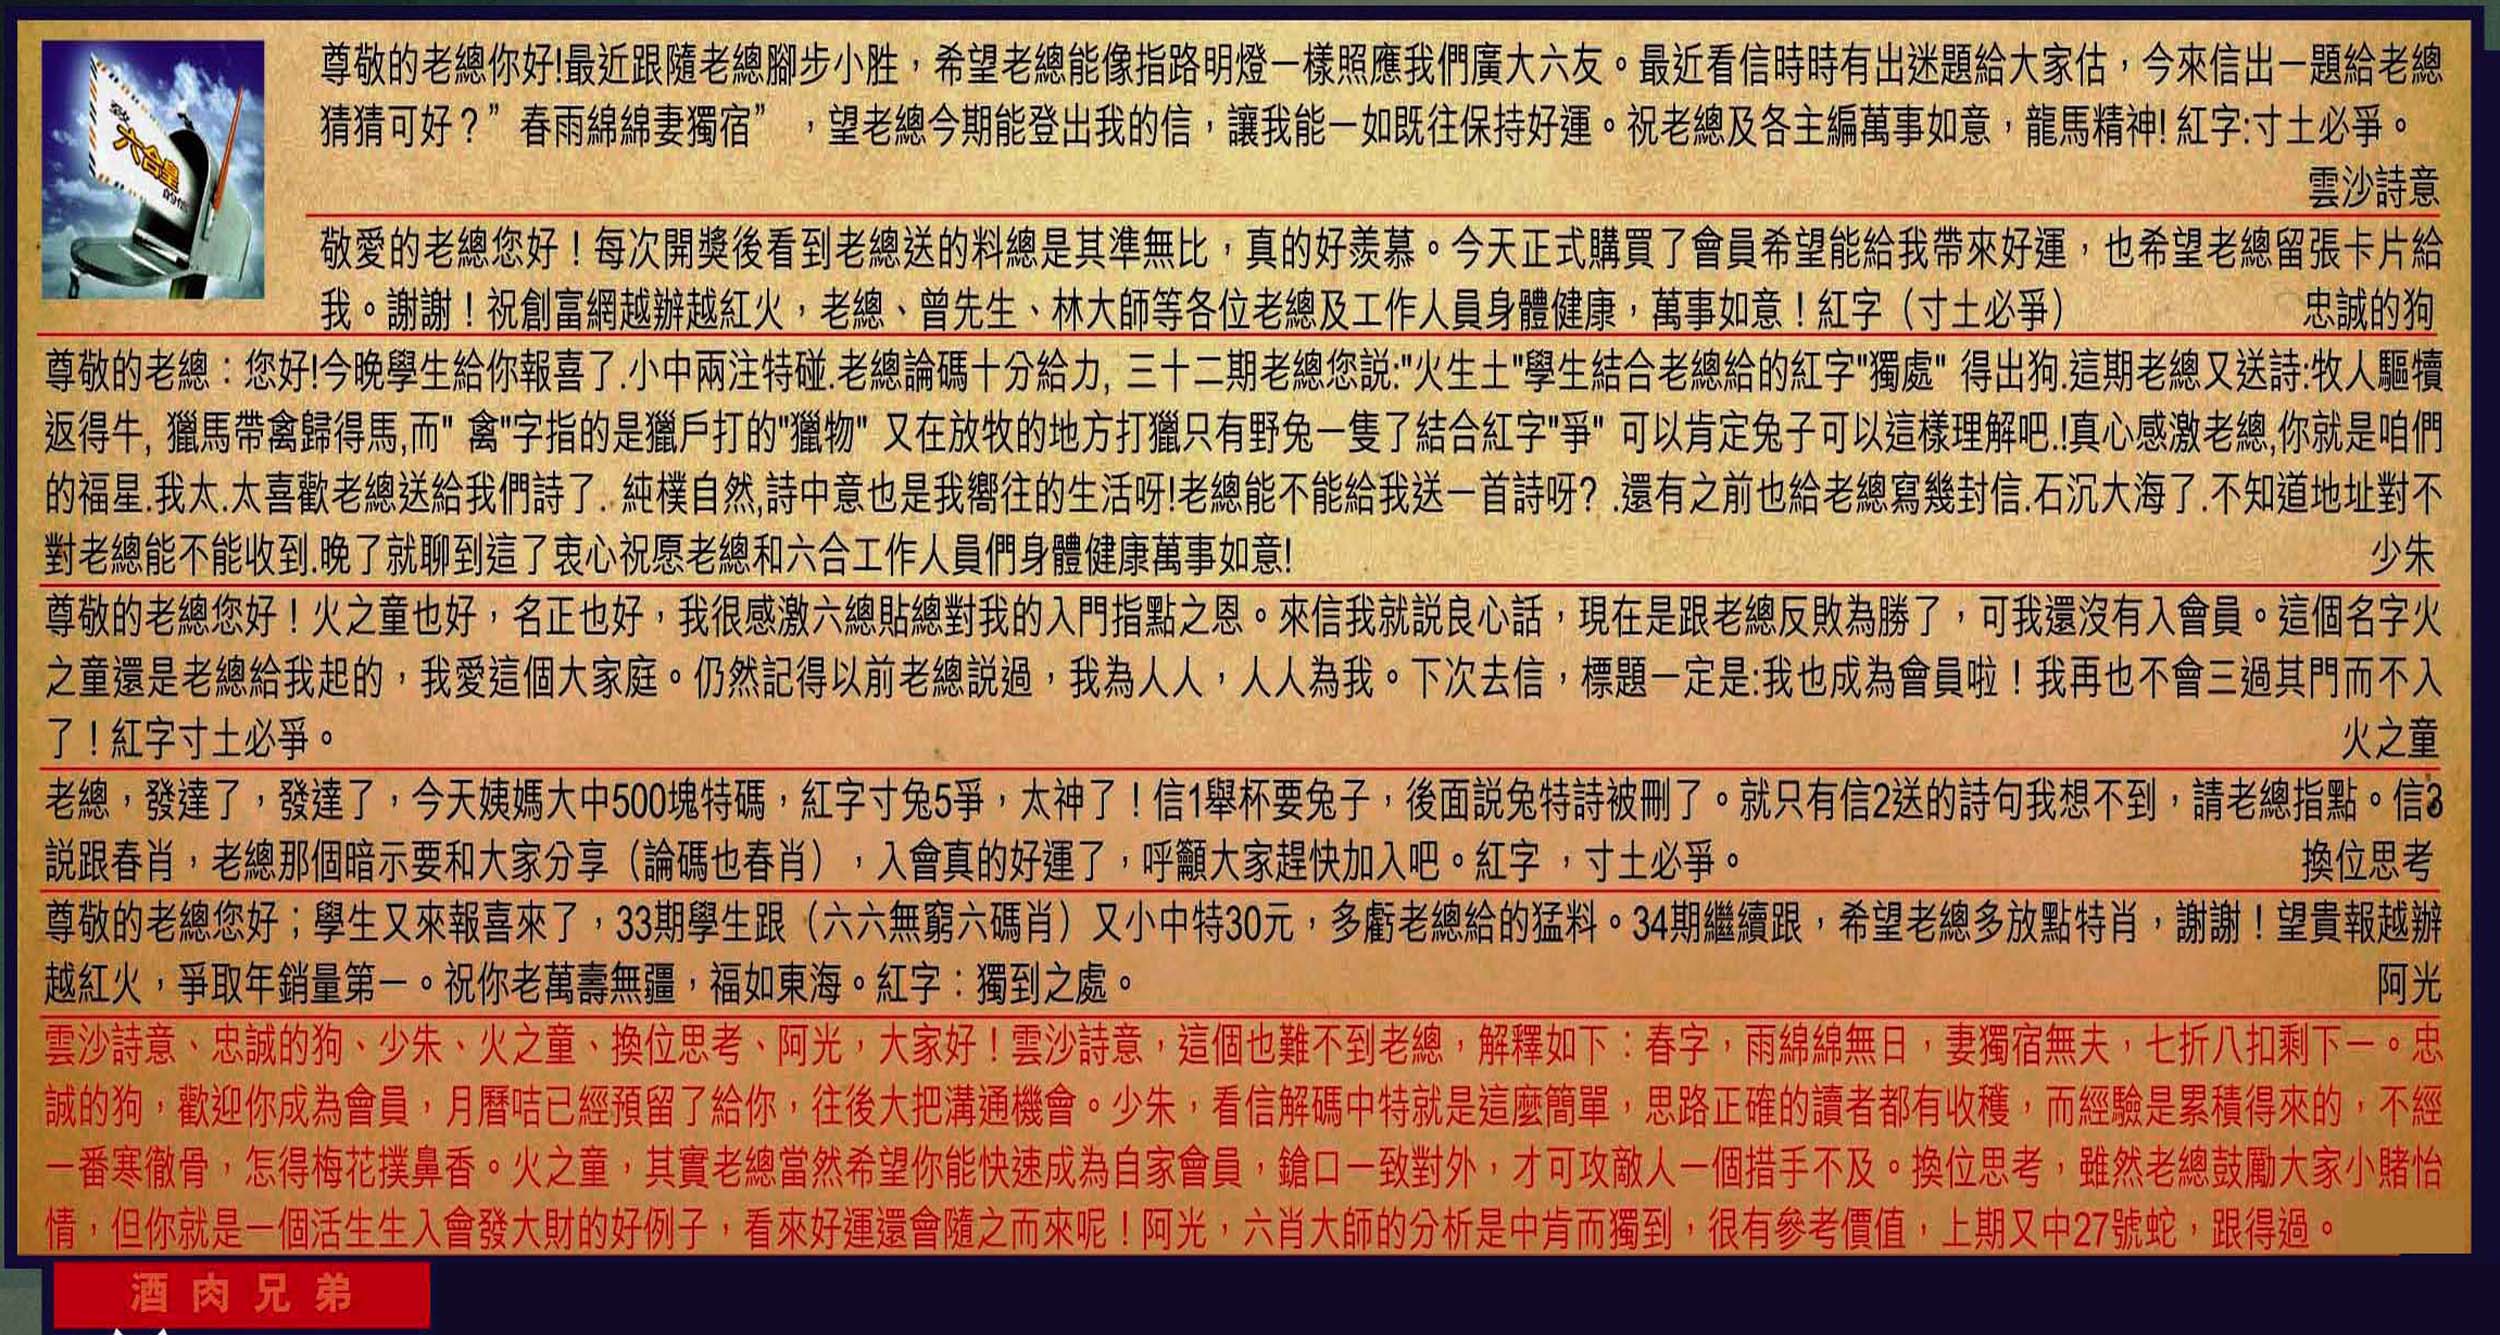 致
六合皇
的信
尊敬的老總你好!最近跟隨老總腳步小胜，希望老總能像指路明燈一樣照應我們廣大六友。最近看信時時有出迷題給大家估，今來信出一題給老總
猜猜可好？”春雨綿綿妻獨宿”，望老總今期能登出我的信，讓我能一如既往保持好運。祝老總及各主編萬事如意，龍馬精神! 紅字:寸土必爭。
雲沙詩意
敬愛的老總您好！每次開獎後看到老總送的料總是其準無比，真的好羨慕。今天正式購買了會員希望能給我帶來好運，也希望老總留張卡片給
我。謝謝！祝創富網越辦越紅火，老總、曾先生、林大師等各位老總及工作人員身體健康，萬事如意！紅字（寸土必爭） 忠誠的狗
尊敬的老總：您好!今晚學生給你報喜了.小中兩注特碰.老總論碼十分給力, 三十二期老總您説:"火生土"學生結合老總給的紅字"獨處" 得出狗.這期老總又送詩:牧人驅犢
返得牛, 獵馬帶禽歸得馬,而" 禽"字指的是獵戶打的"獵物" 又在放牧的地方打獵只有野兔一隻了結合紅字"爭" 可以肯定兔子可以這樣理解吧.!真心感激老總,你就是咱們
的福星.我太.太喜歡老總送給我們詩了. 純樸自然,詩中意也是我嚮往的生活呀!老總能不能給我送一首詩呀? .還有之前也給老總寫幾封信.石沉大海了.不知道地址對不
對老總能不能收到.晚了就聊到這了衷心祝愿老總和六合工作人員們身體健康萬事如意! 少朱
尊敬的老總您好！火之童也好，名正也好，我很感激六總貼總對我的入門指點之恩。來信我就説良心話，現在是跟老總反敗為勝了，可我還沒有入會員。這個名字火
之童還是老總給我起的，我愛這個大家庭。仍然記得以前老總説過，我為人人，人人為我。下次去信，標題一定是:我也成為會員啦！我再也不會三過其門而不入
了！紅字寸土必爭。 火之童
老總，發達了，發達了，今天姨媽大中500塊特碼，紅字寸兔5爭，太神了！信1舉杯要兔子，後面説兔特詩被刪了。就只有信2送的詩句我想不到，請老總指點。信3
説跟春肖，老總那個暗示要和大家分享（論碼也春肖），入會真的好運了，呼籲大家趕快加入吧。紅字 ，寸土必爭。 換位思考
尊敬的老總您好；學生又來報喜來了，33期學生跟（六六無窮六碼肖）又小中特30元，多虧老總給的猛料。34期繼續跟，希望老總多放點特肖，謝謝！望貴報越辦
越紅火，爭取年銷量第一。祝你老萬壽無疆，福如東海。紅字：獨到之處。 阿光
雲沙詩意、忠誠的狗、少朱、火之童、換位思考、阿光，大家好！雲沙詩意，這個也難不到老總，解釋如下：春字，雨綿綿無日，妻獨宿無夫，七折八扣剩下一。忠
誠的狗，歡迎你成為會員，月曆咭已經預留了給你，往後大把溝通機會。少朱，看信解碼中特就是這麼簡單，思路正確的讀者都有收穫，而經驗是累積得來的，不經
一番寒徹骨，怎得梅花撲鼻香。火之童，其實老總當然希望你能快速成為自家會員，鎗口一致對外，才可攻敵人一個措手不及。換位思考，雖然老總鼓勵大家小賭怡
情，但你就是一個活生生入會發大財的好例子，看來好運還會隨之而來呢！阿光，六肖大師的分析是中肯而獨到，很有參考價值，上期又中27號蛇，跟得過。
酒肉兄弟